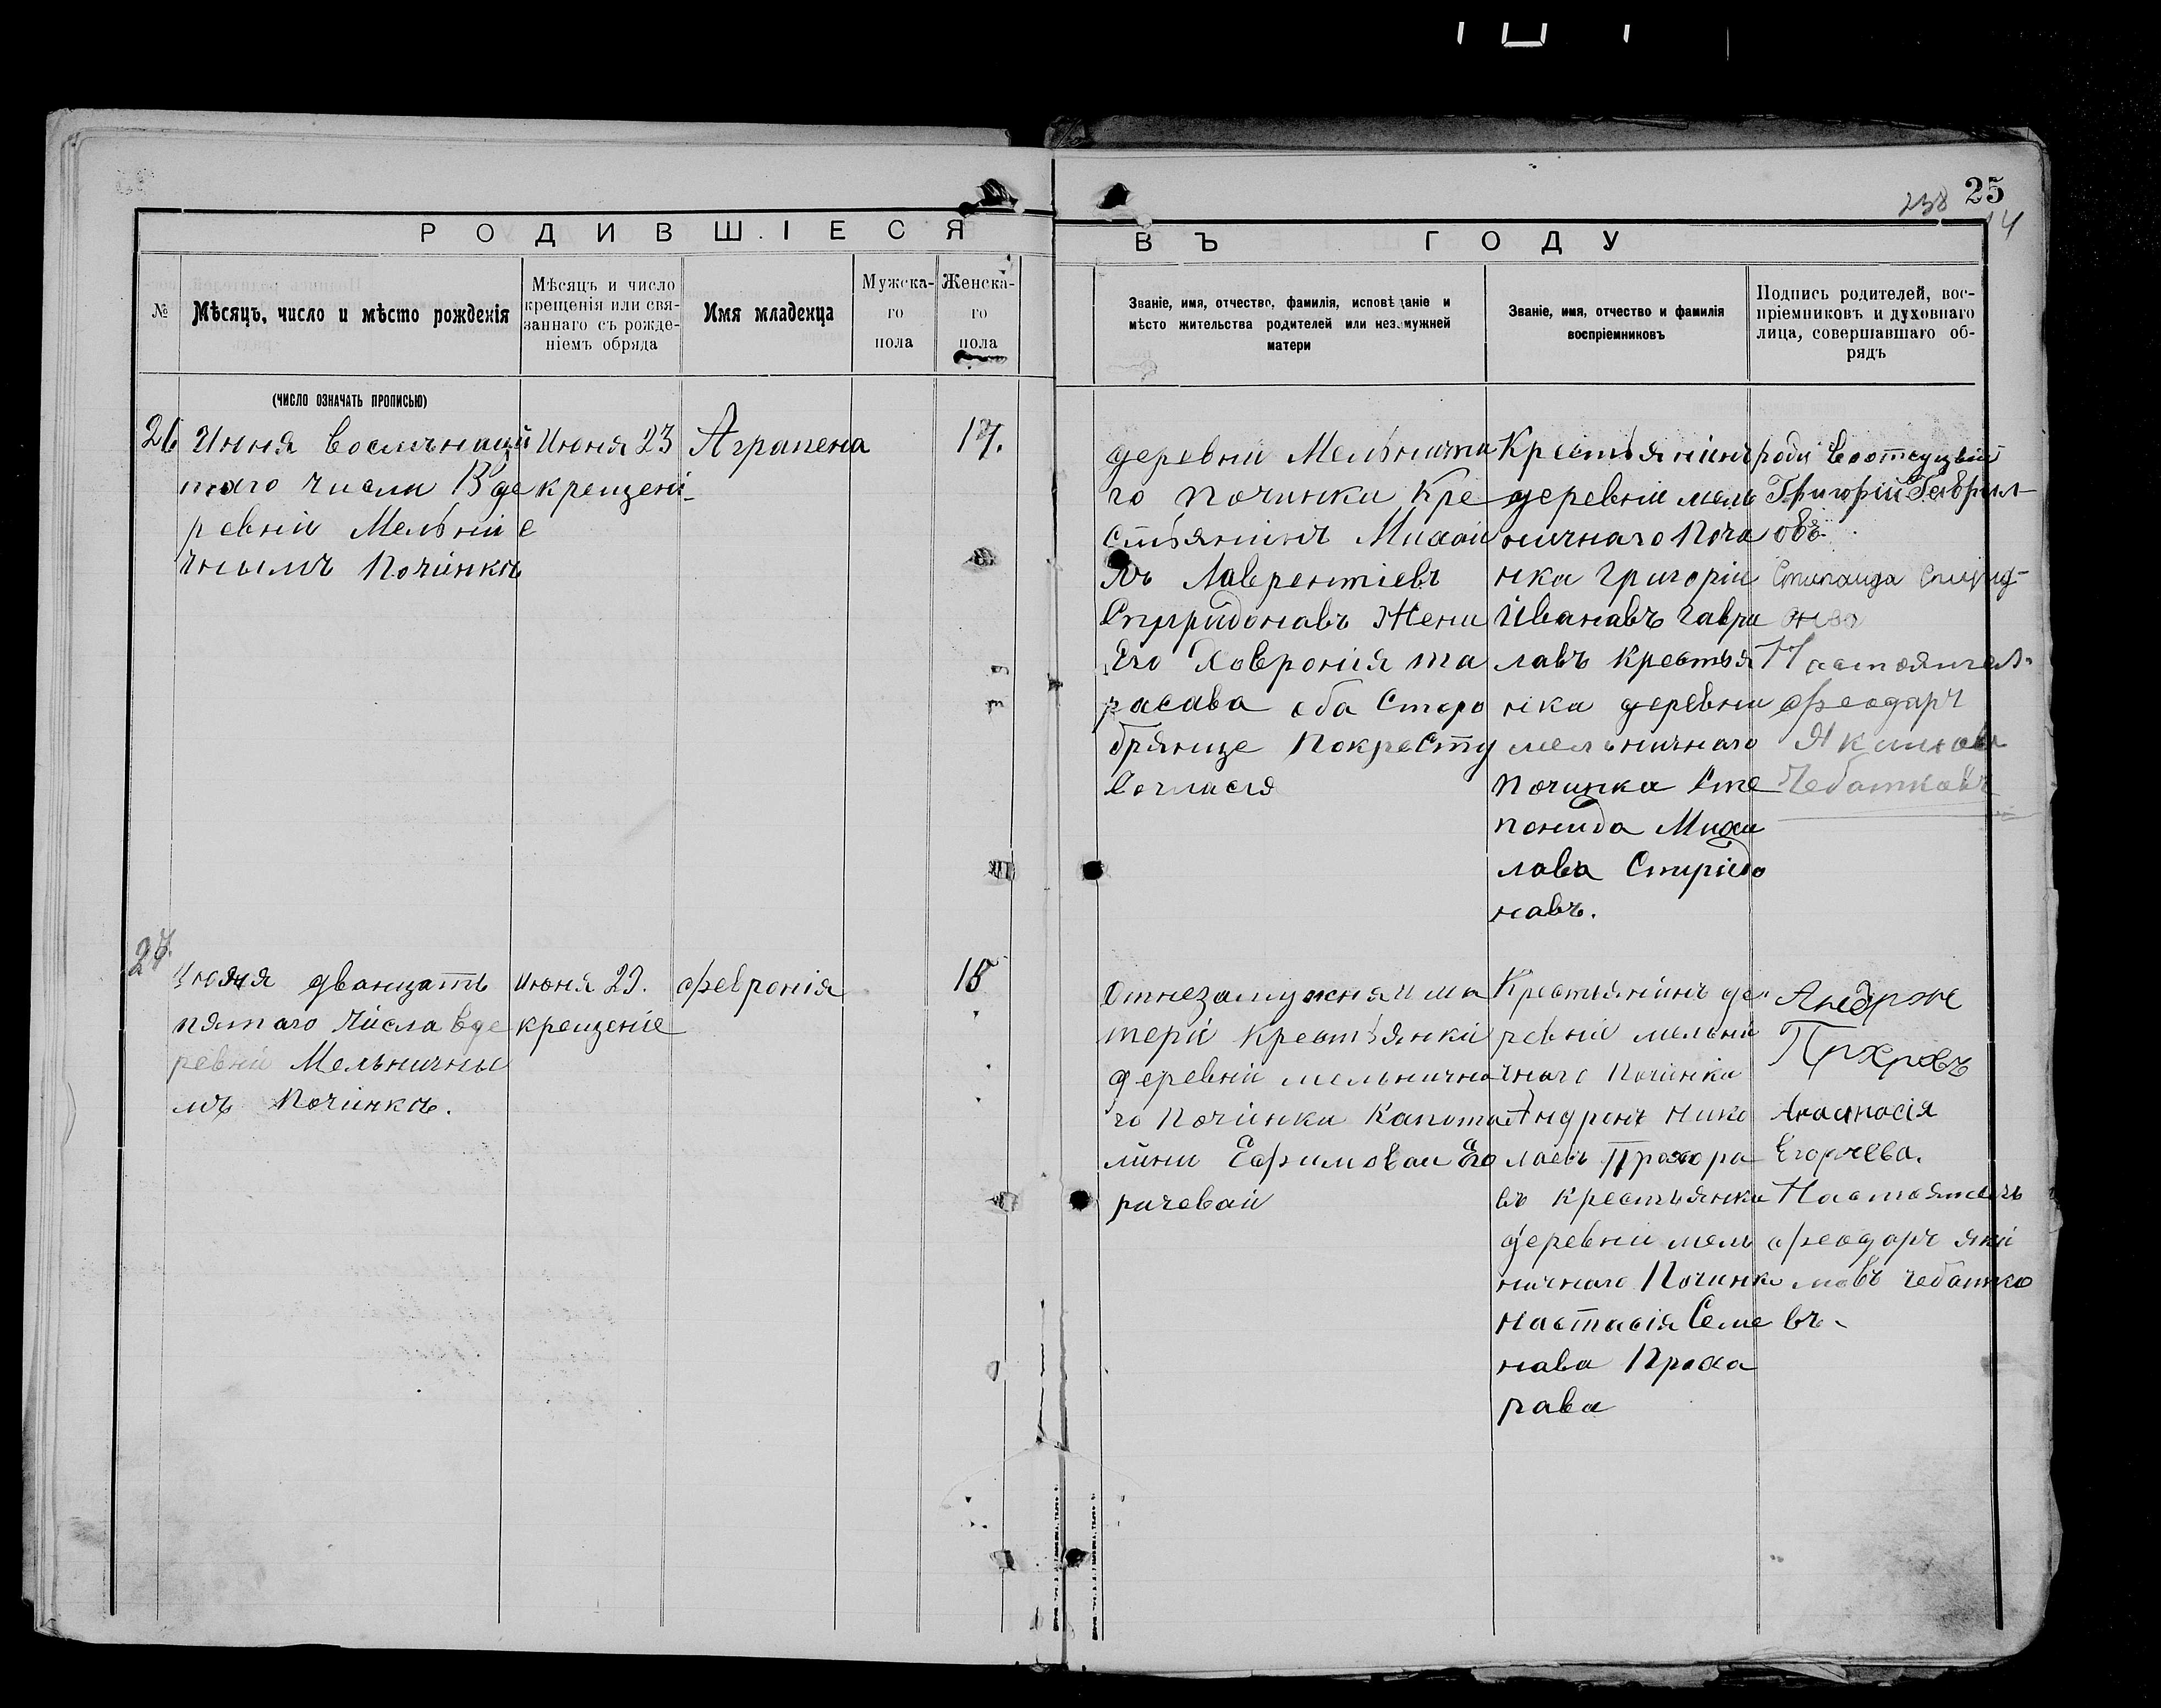 25
238
14
РОДИВШІЕСЯ
ВЪ ГОДУ
№
Мѣсяцъ, число и мѣсто рожденія
Мѣсяцъ и число
крещенія или свя-
заннаго съ рожде-
ніемъ обряда
Имя младенца
Мужска-
го
пола
Женска-
го
пола
Званіе, имя, отчество, фамилія, исповѣданіе и
мѣсто жительства родителей или незамужней
матери
Званіе, имя, отчество и фамилія
воспріемниковъ
Подпись родителей, вос-
пріемниковъ и духовнаго
лица, совершавшаго об-
рядъ
(ЧИСЛО ОЗНАЧАТЬ ПРОПИСЬЮ)
26
Июня восемьнацй
таго числа В де
ревніи Мельніи
чнымъ Починкѣ
Июня 23
крещені
е
Аграпена
17.
деревни Мельнична
го починка Кре
стьянинъ Михаи
лъ Лаврентіевъ
Спиридонавъ Жена
Его Ховронія та
расава оба Старо
брянце Покресту
Согласія
Крестьянинъ
деревніи мель
ничнаго Почи
нка Григоріи
Иванавъ гаври
лавъ крестья
нка деревни
мельничнаго
Починка Сте
понида Михаи
лава Спиридо
навъ.
роди
Григорій Гаврил
овъ
Степанида Спирид
Настоятел
Феодаръ
Якимовъ
Чебатковъ
27.
Июня дванцать
пятаго числа вде
ревни Мельничны
мъ Починкѣ.
Июня 29.
крещеніе
Февронія
18
Отнезамужняи ма
тери крестьянки
деревніи мельнична
го Починка Капита
лини Ефимоваи Его
ричеваи
Крестьянинъ де
ревніи мельни
чнаго Починка
Андронъ Нико
лаевъ Прохора
въ крестьянка
деревніи мель
ничнаго Починка
Настасія Семе
нава Проха
рава
Андрон
Прхровъ
Анастасія
Егорчева.
Настоятель
Феодаръ яки
мовъ чебатко
въ.